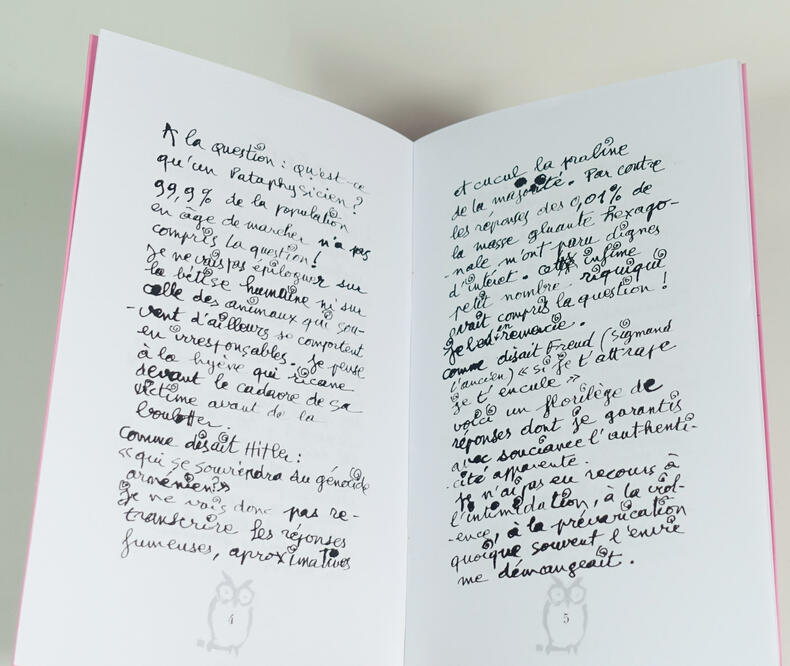 A la question : qu'est-ce
qu'un Pataphysicien ?
99,9% de la population
en âge de marcher n'a pas
compris la question !
Je ne vais pas épiloguer sur
la bétise humaine ni sur
celle des animaux qui sou-
-vent d'ailleurs se comportent
en irresponsables. Je pense
à la hyène qui ricane
devant le cadavre de sa
victime avant de la
boulotter.
comme disait Hitler :
« qui se souviendra du génocide
arménien ? »
Je ne vais donc pas re-
transcrire les réponses
fumeuses, aproximatives
4
et cucul la praline
de la majorité. Par contre
les réponses des 0,01% de
la masse gluante hexago-
-nale m'ont paru dignes
d'intéret. cette infime
petit nombre riquiqui
avait compris la question !
Je les en remercie.
comme disait Freud (Sigmund
l'ancien) « si je t'attrape
je t'encule »
voici un florilège de
réponses dont je garantis
avec souciance l'authenti-
-cité apparente.
Je n'ai pas eu recours à
l'intimidation, à la viol-
-ence, à la prévarication
quoique souvent l'envie
me démangeait.
5